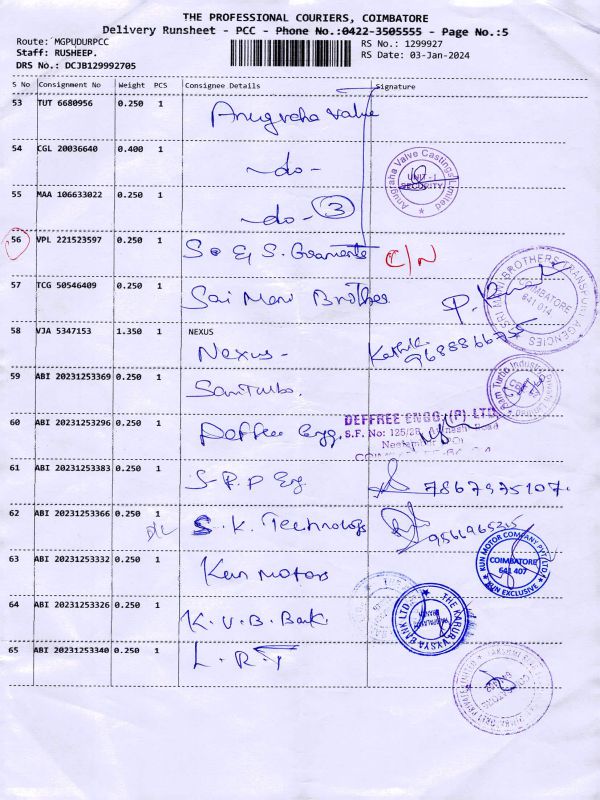 THE PROFESSIONAL COURIERS, COIMBATORE
Delivery Runsheet - PCC - Phone No.:0422-3505555 - Page No.:5
Route: MGPUDURPCC
RS No.: 1299927
Staff: RUSHEEP.
RS Date: 03-Jan-2024
DRS No.: DCJB129992705
S No Consignment No Weight PCS Consignee Details Signature
53 TUT 6680956 0.250 1 Anugraha Valve
54 CGL 20036640 0.400 1 -do-
Anugraha Valve Castings Limited UNIT - I SECURITY
55 MAA 106633022 0.250 1 -do- 3
56 VPL 221523597 0.250 1 S & S. C/N
57 TCG 50546409 0.250 1 Sai Mani Brothers
SRI MANI BROTHERS AGENCIES COIMBATORE 641 014
58 VJA 5347153 1.350 1 NEXUS
Nexus -
59 ABI 20231253369 0.250 1
60 ABI 20231253296 0.250 1 Deffree Engg.
DEFFREE ENGG. (P) LTD
S.F. No: Road
61 ABI 20231253383 0.250 1 S R P Eng. 7867975107.
62 ABI 20231253366 0.250 1 D/L S. K. Technology
63 ABI 20231253332 0.250 1 Kun Motors
KUN MOTOR COMPANY PVT LTD COIMBATORE 641 407 KUN EXCLUSIVE
64 ABI 20231253326 0.250 1 K. V. B. Bank
THE KARUR VYSYA BANK LTD.
65 ABI 20231253340 0.250 1 L. R. T